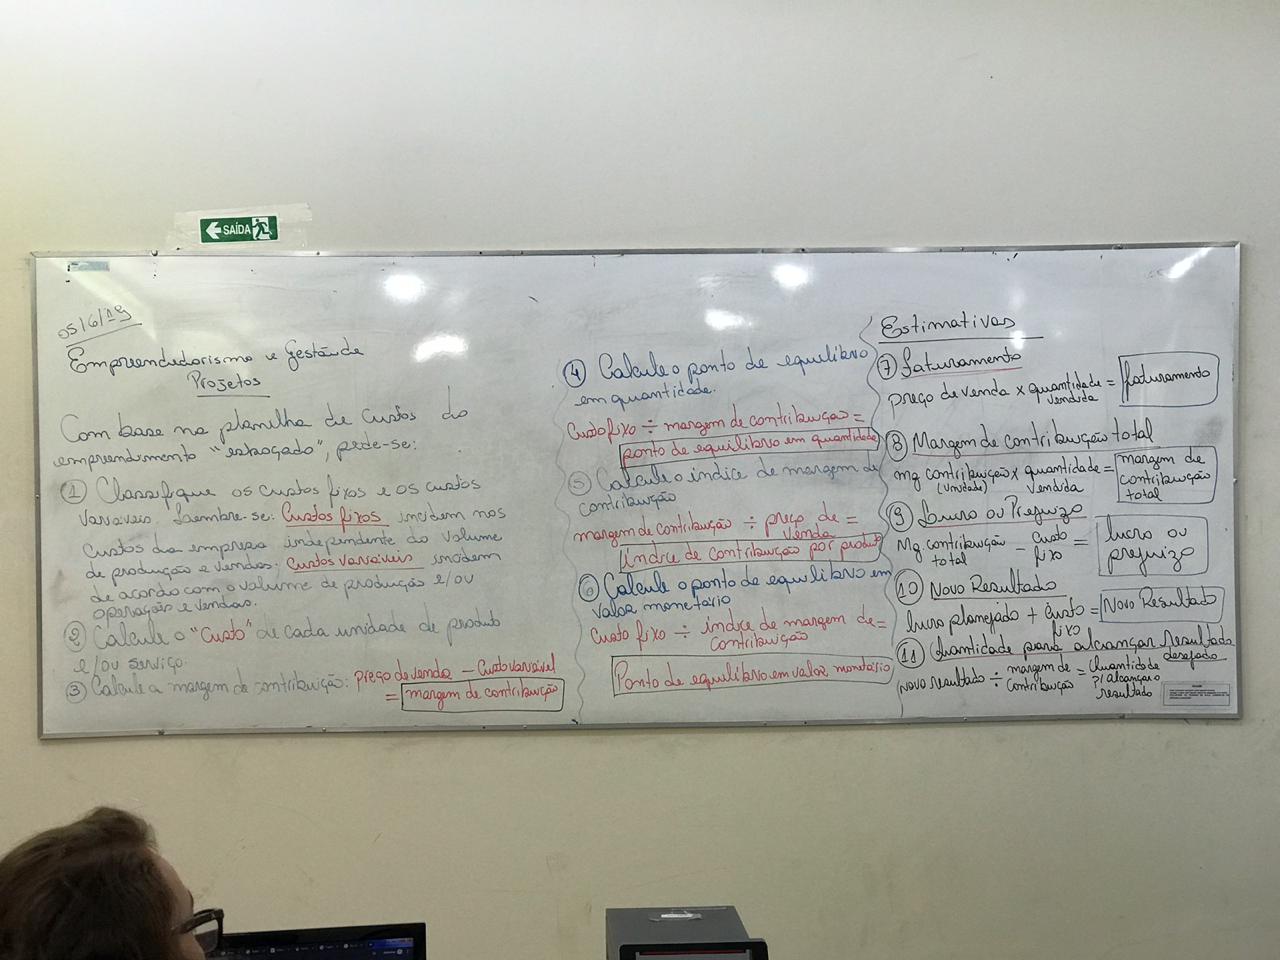 SAÍDA
05/6/19
Empreendedorismo e Gestão de
Projetos
Com base na planilha de custos do
empreendimento "esboçado", pede-se:
① Classifique os custos fixos e os custos
variáveis. Lembre-se: Custos fixos incidem nos
custos da empresa independente do volume
de produção e vendas. Custos variáveis incidem
de acordo com o volume de produção e/ou
operação e vendas.
② Calcule o "Custo" de cada unidade de produto
e/ou serviço.
③ Calcule a margem de contribuição: preço de venda - Custo variável
= margem de contribuição
④ Calcule o ponto de equilíbrio
em quantidade.
Custo fixo ÷ margem de contribuição =
ponto de equilíbrio em quantidade
⑤ Calcule o índice de margem de
contribuição
margem de contribuição ÷ preço de =
venda
índice de contribuição por produto
⑥ Calcule o ponto de equilíbrio em
valor monetário
Custo fixo ÷ índice de margem de =
contribuição
Ponto de equilíbrio em valor monetário
Estimativas
⑦ faturamento
preço de venda x quantidade = faturamento
vendida
⑧ Margem de contribuição total
mg contribuição x quantidade = margem de
(Unidade) vendida contribuição
total
⑨ Lucro ou Prejuízo
Mg. contribuição - custo = lucro ou
total fixo prejuízo
⑩ Novo Resultado
lucro planejado + custo = Novo Resultado
fixo
⑪ Quantidade para alcançar resultado
desejado
novo resultado ÷ margem de = Quantidade
contribuição p/ alcançar o
resultado